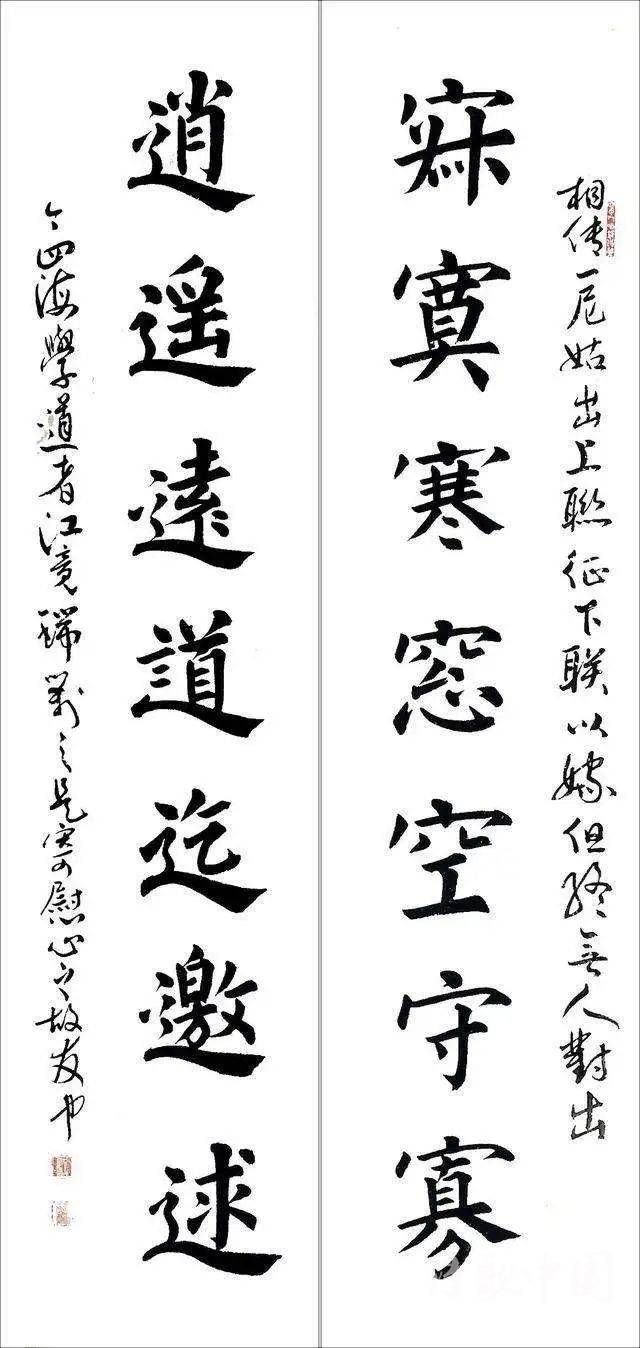 相传一尼姑出上聯征下联以嫁但終無人對出
寂寞寒窓空守寡
逍遥遠道迄邀逑
今四海學道者江竟瑞對之是慰心之故友也
中国